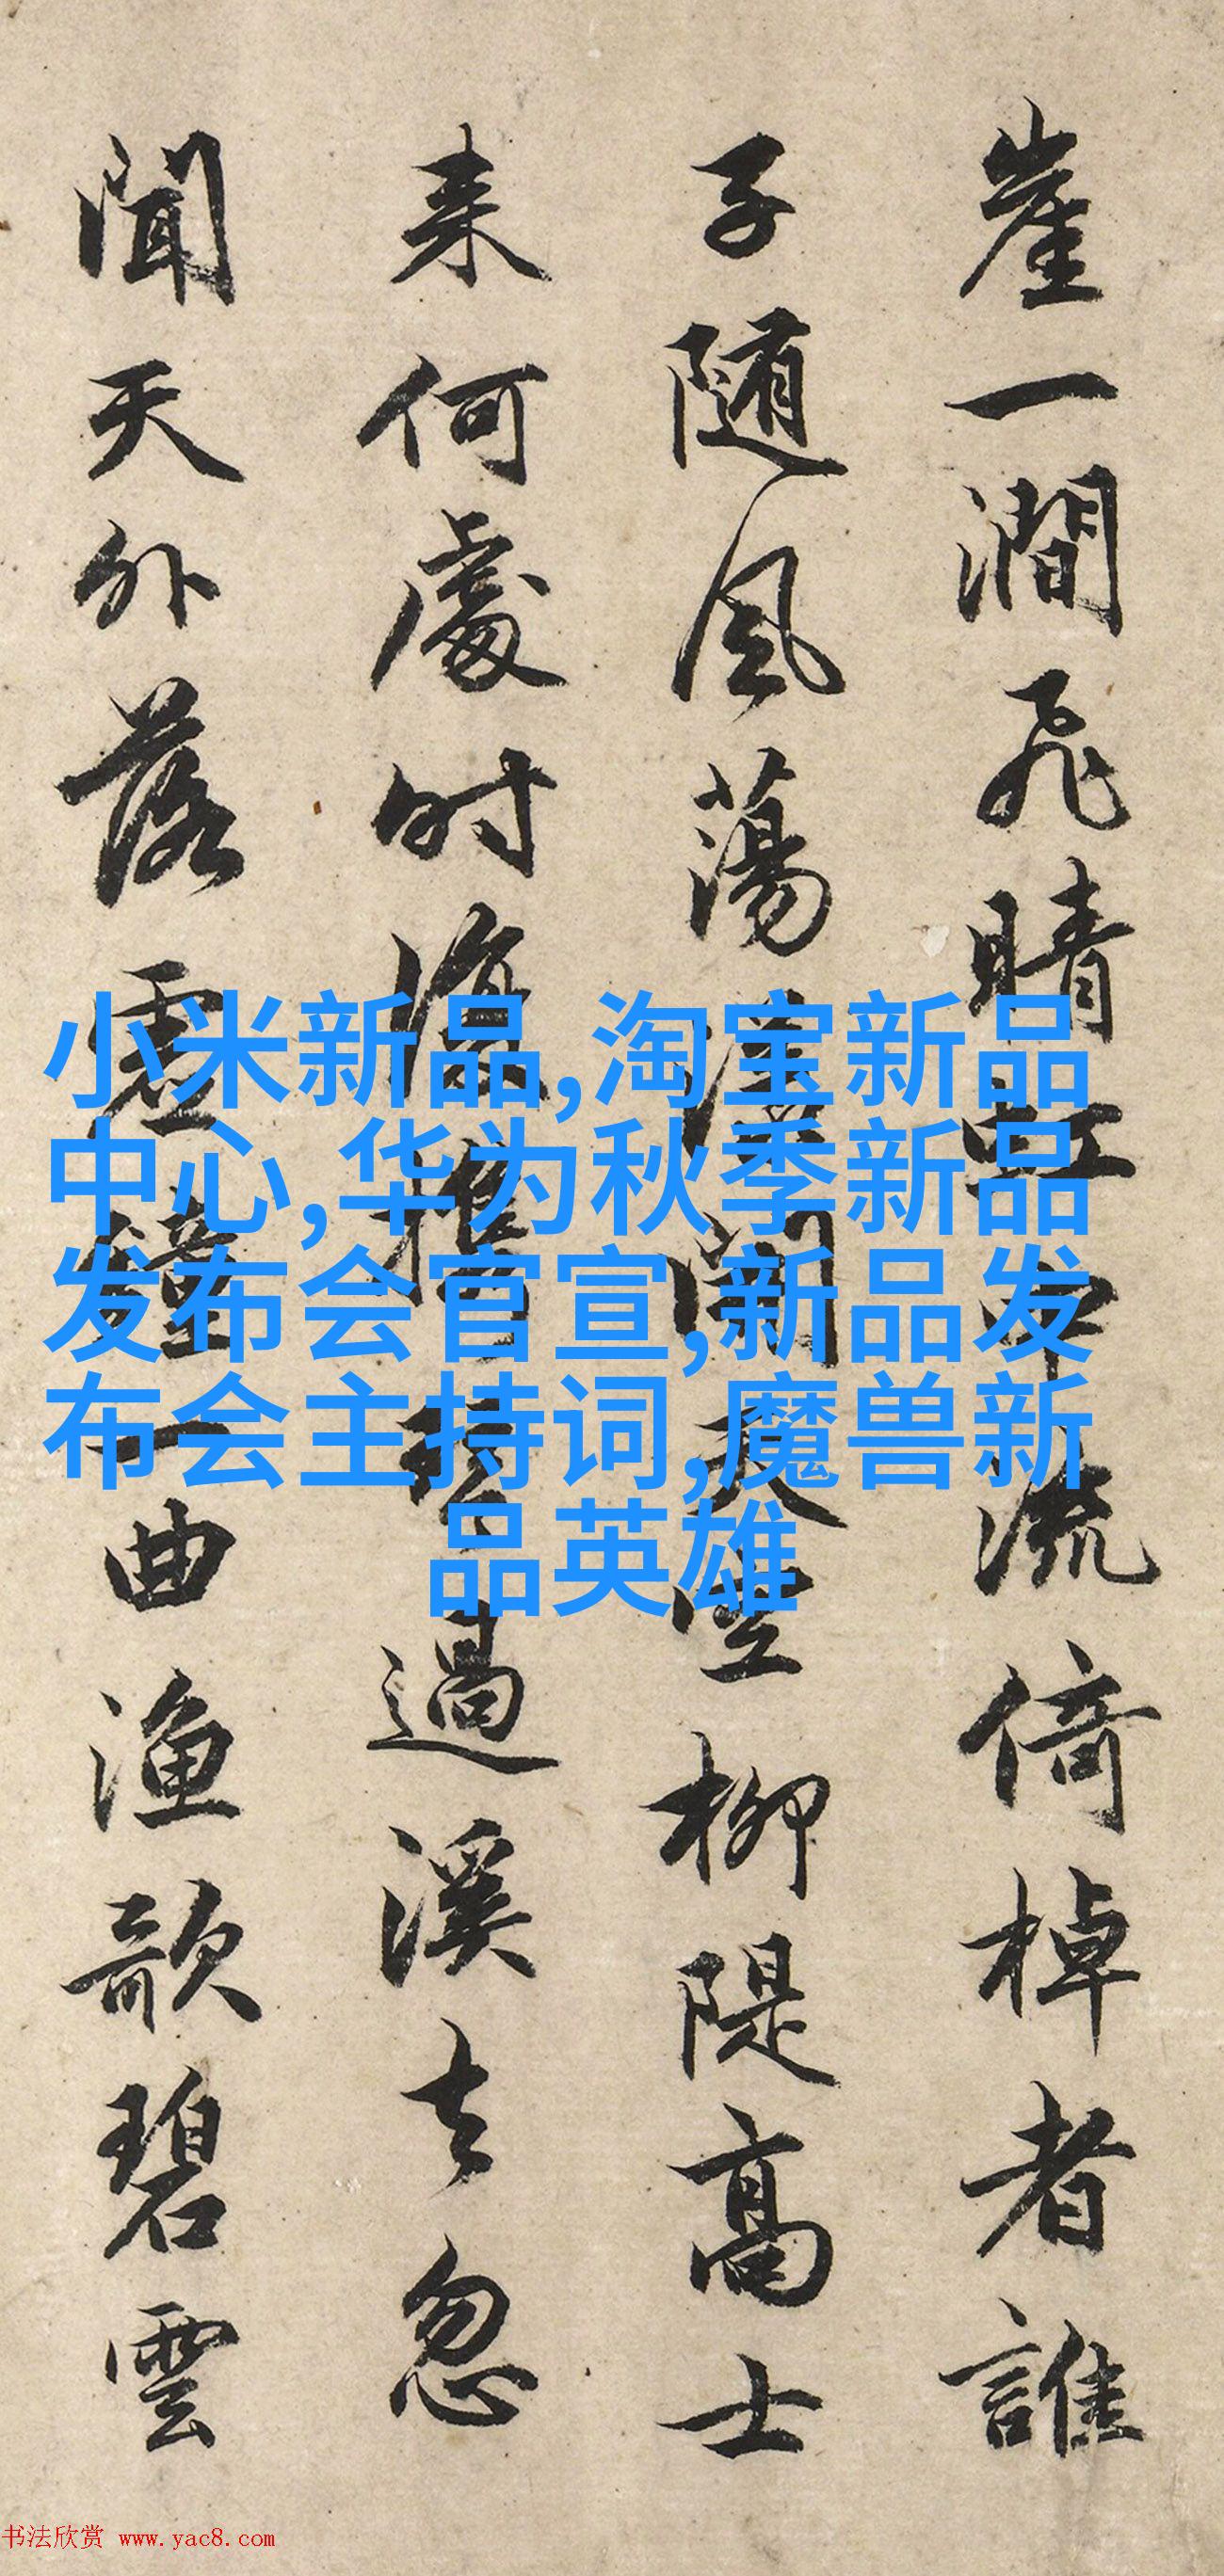 崖一澗飛晴虹中流倚棹者誰
子随風蕩天空柳隄高士
来何處时復携琴過溪去忽
聞天外落一曲漁歌碧雲
小米新品,淘宝新品
中心,华为秋季新品
发布会官宣,新品发
布会主持词,魔兽新
品英雄
书法欣赏 www.yac8.com